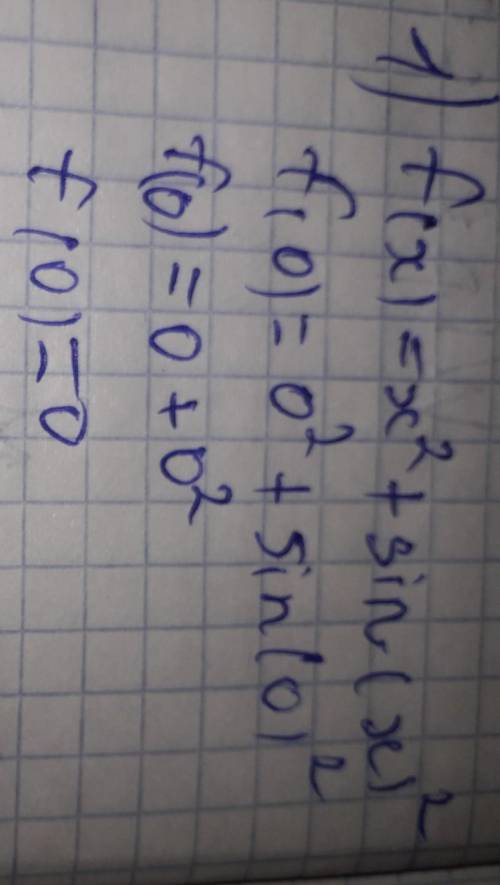 1) f(x) = x² + sin(x)²
f(0) = 0² + sin(0)²
f(0) = 0 + 0²
f(0) = 0